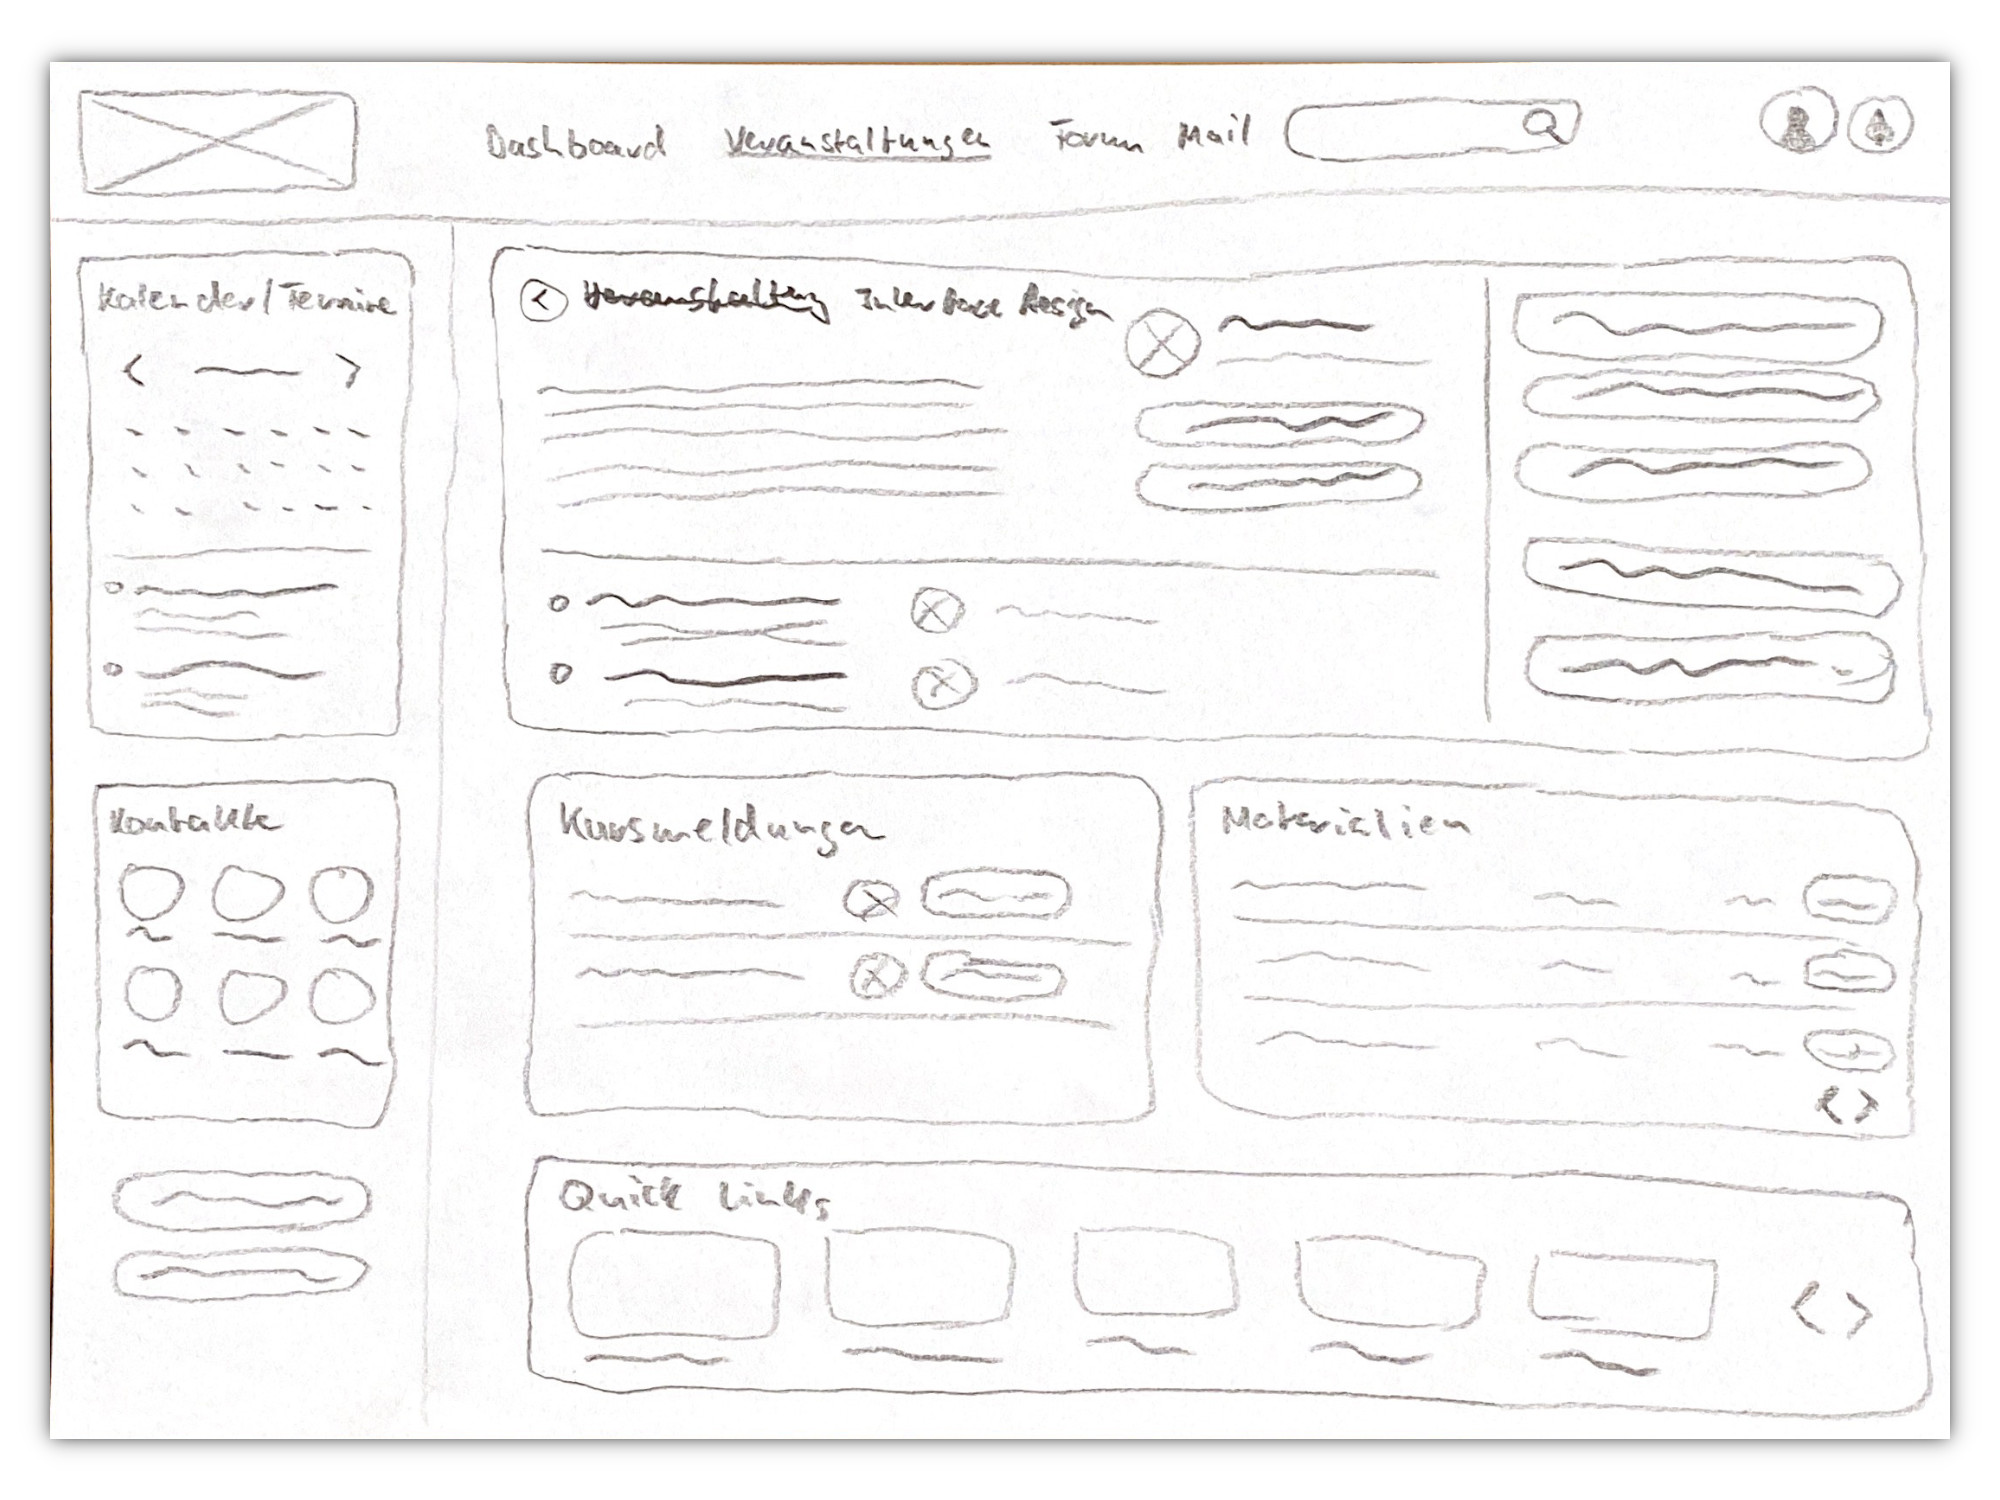 Dashboard Veranstaltungen Forum Mail
Kalender/Termine
Veranstaltung Interface Design
Kontakte
Kursmeldungen
Materialien
Quick Links